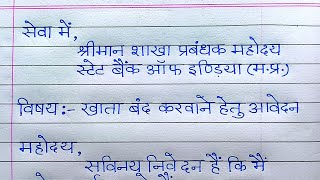 सेवा में,
श्रीमान शाखा प्रबंधक महोदय
स्टेट बैंक ऑफ इण्ड़िया (म.प्र.)
विषय:- खाता बंद करवाने हेतु आवेदन
महोदय,
सविनयू निवेदन हैं कि मैं